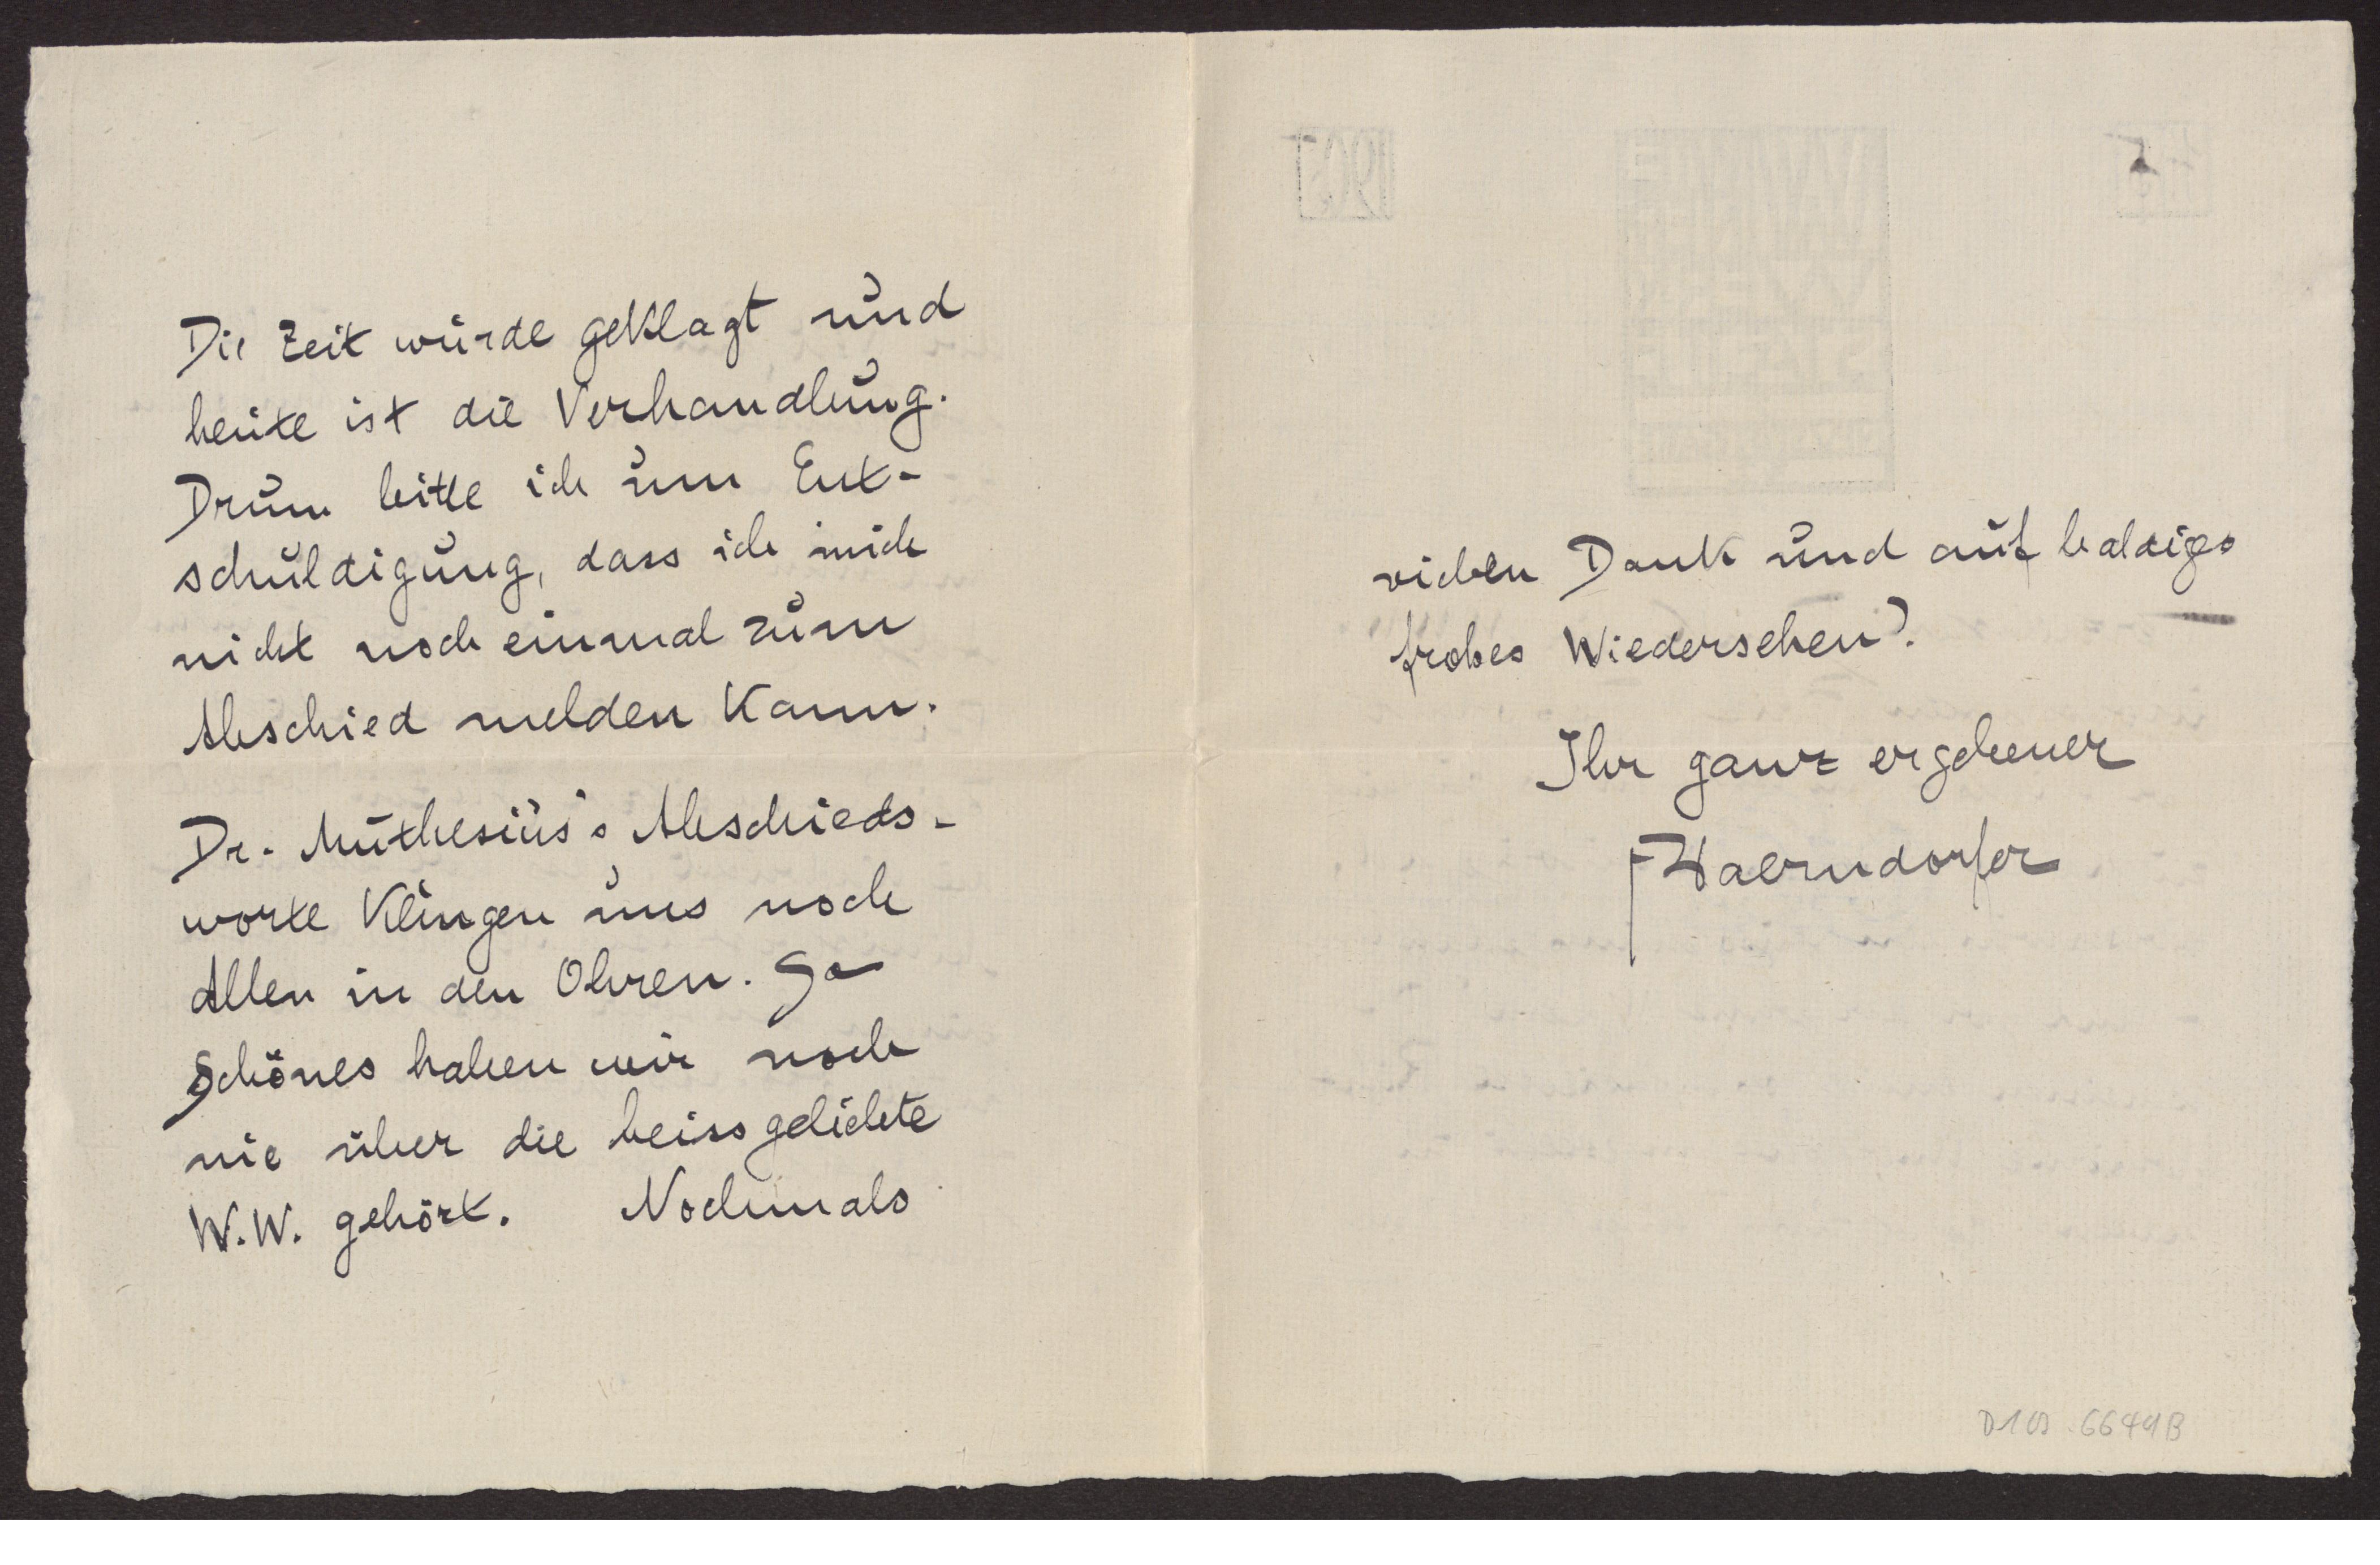 Die Zeit wurde geklagt und
heute ist die Verhandlung.
Drum bitte ich um Ent-
schuldigung, dass ich mich
nicht noch einmal zum
Abschied melden kann.
Dr. Muthesius's Abschieds-
worte klingen uns noch
Allen in den Ohren. So
Schönes haben wir noch
nie über die heissgeliebte
W.W. gehört. Nochmals
vielen Dank und auf baldiges
frohes Wiedersehen!
Ihr ganz ergebener
FWaerndorfer
D 109 6649B